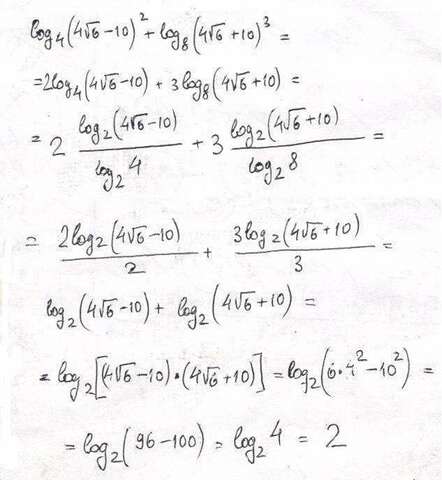 log₄(4√6-10)² + log₈(4√6+10)³ =
=2log₄(4√6-10) + 3log₈(4√6+10) =
= 2 log₂(4√6-10)/log₂4 + 3 log₂(4√6+10)/log₂8 =
= 2log₂(4√6-10)/2 + 3log₂(4√6+10)/3 =
log₂(4√6-10) + log₂(4√6+10) =
= log₂[(4√6-10)·(4√6+10)] = log₂(6·4²-10²) =
= log₂(96-100) = log₂4 = 2